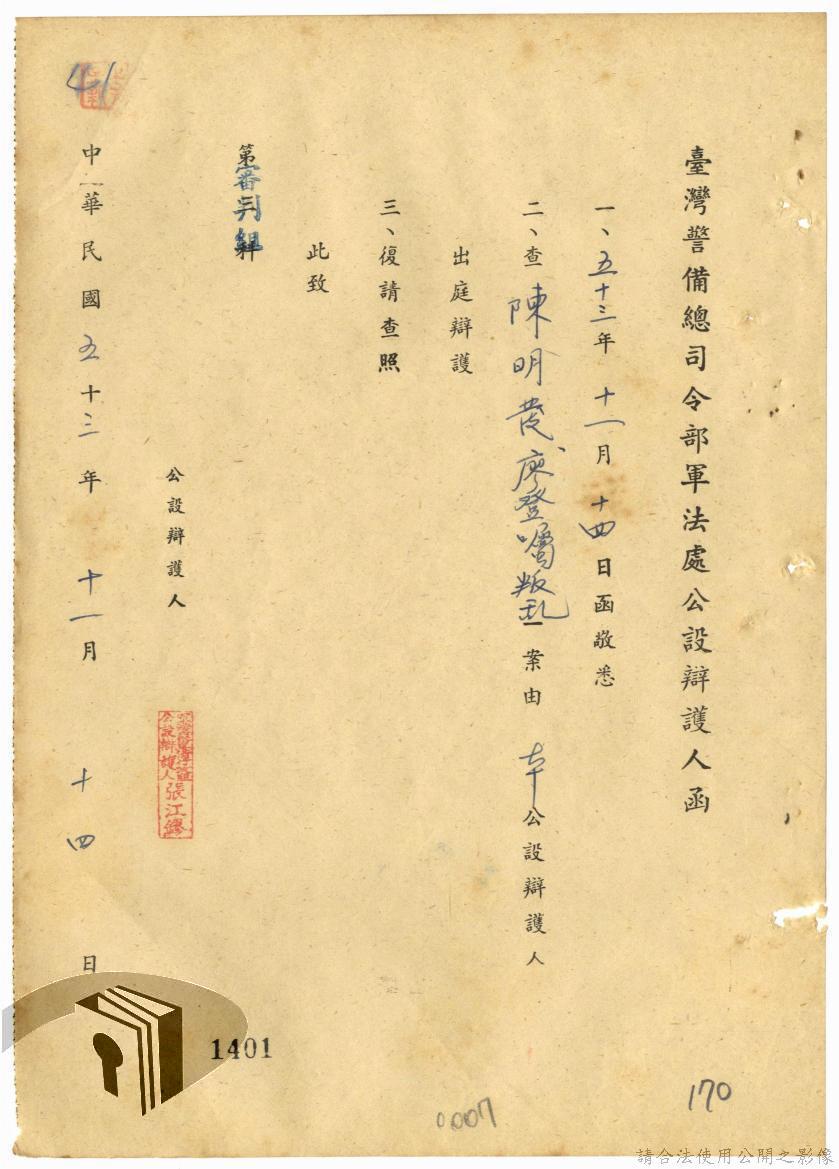 臺灣警備總司令部軍法處公設辯護人函
一、五十三年十一月十四日函敬悉
二、查陳明發、廖登囑叛乱一案由本公設辯護人
出庭辯護
三、復請查照
此致
審判組
公設辯護人
公設辯護人張江鏐
中華民國五十三年十一月十四日
1401
0007
170
請合法使用公開之影像